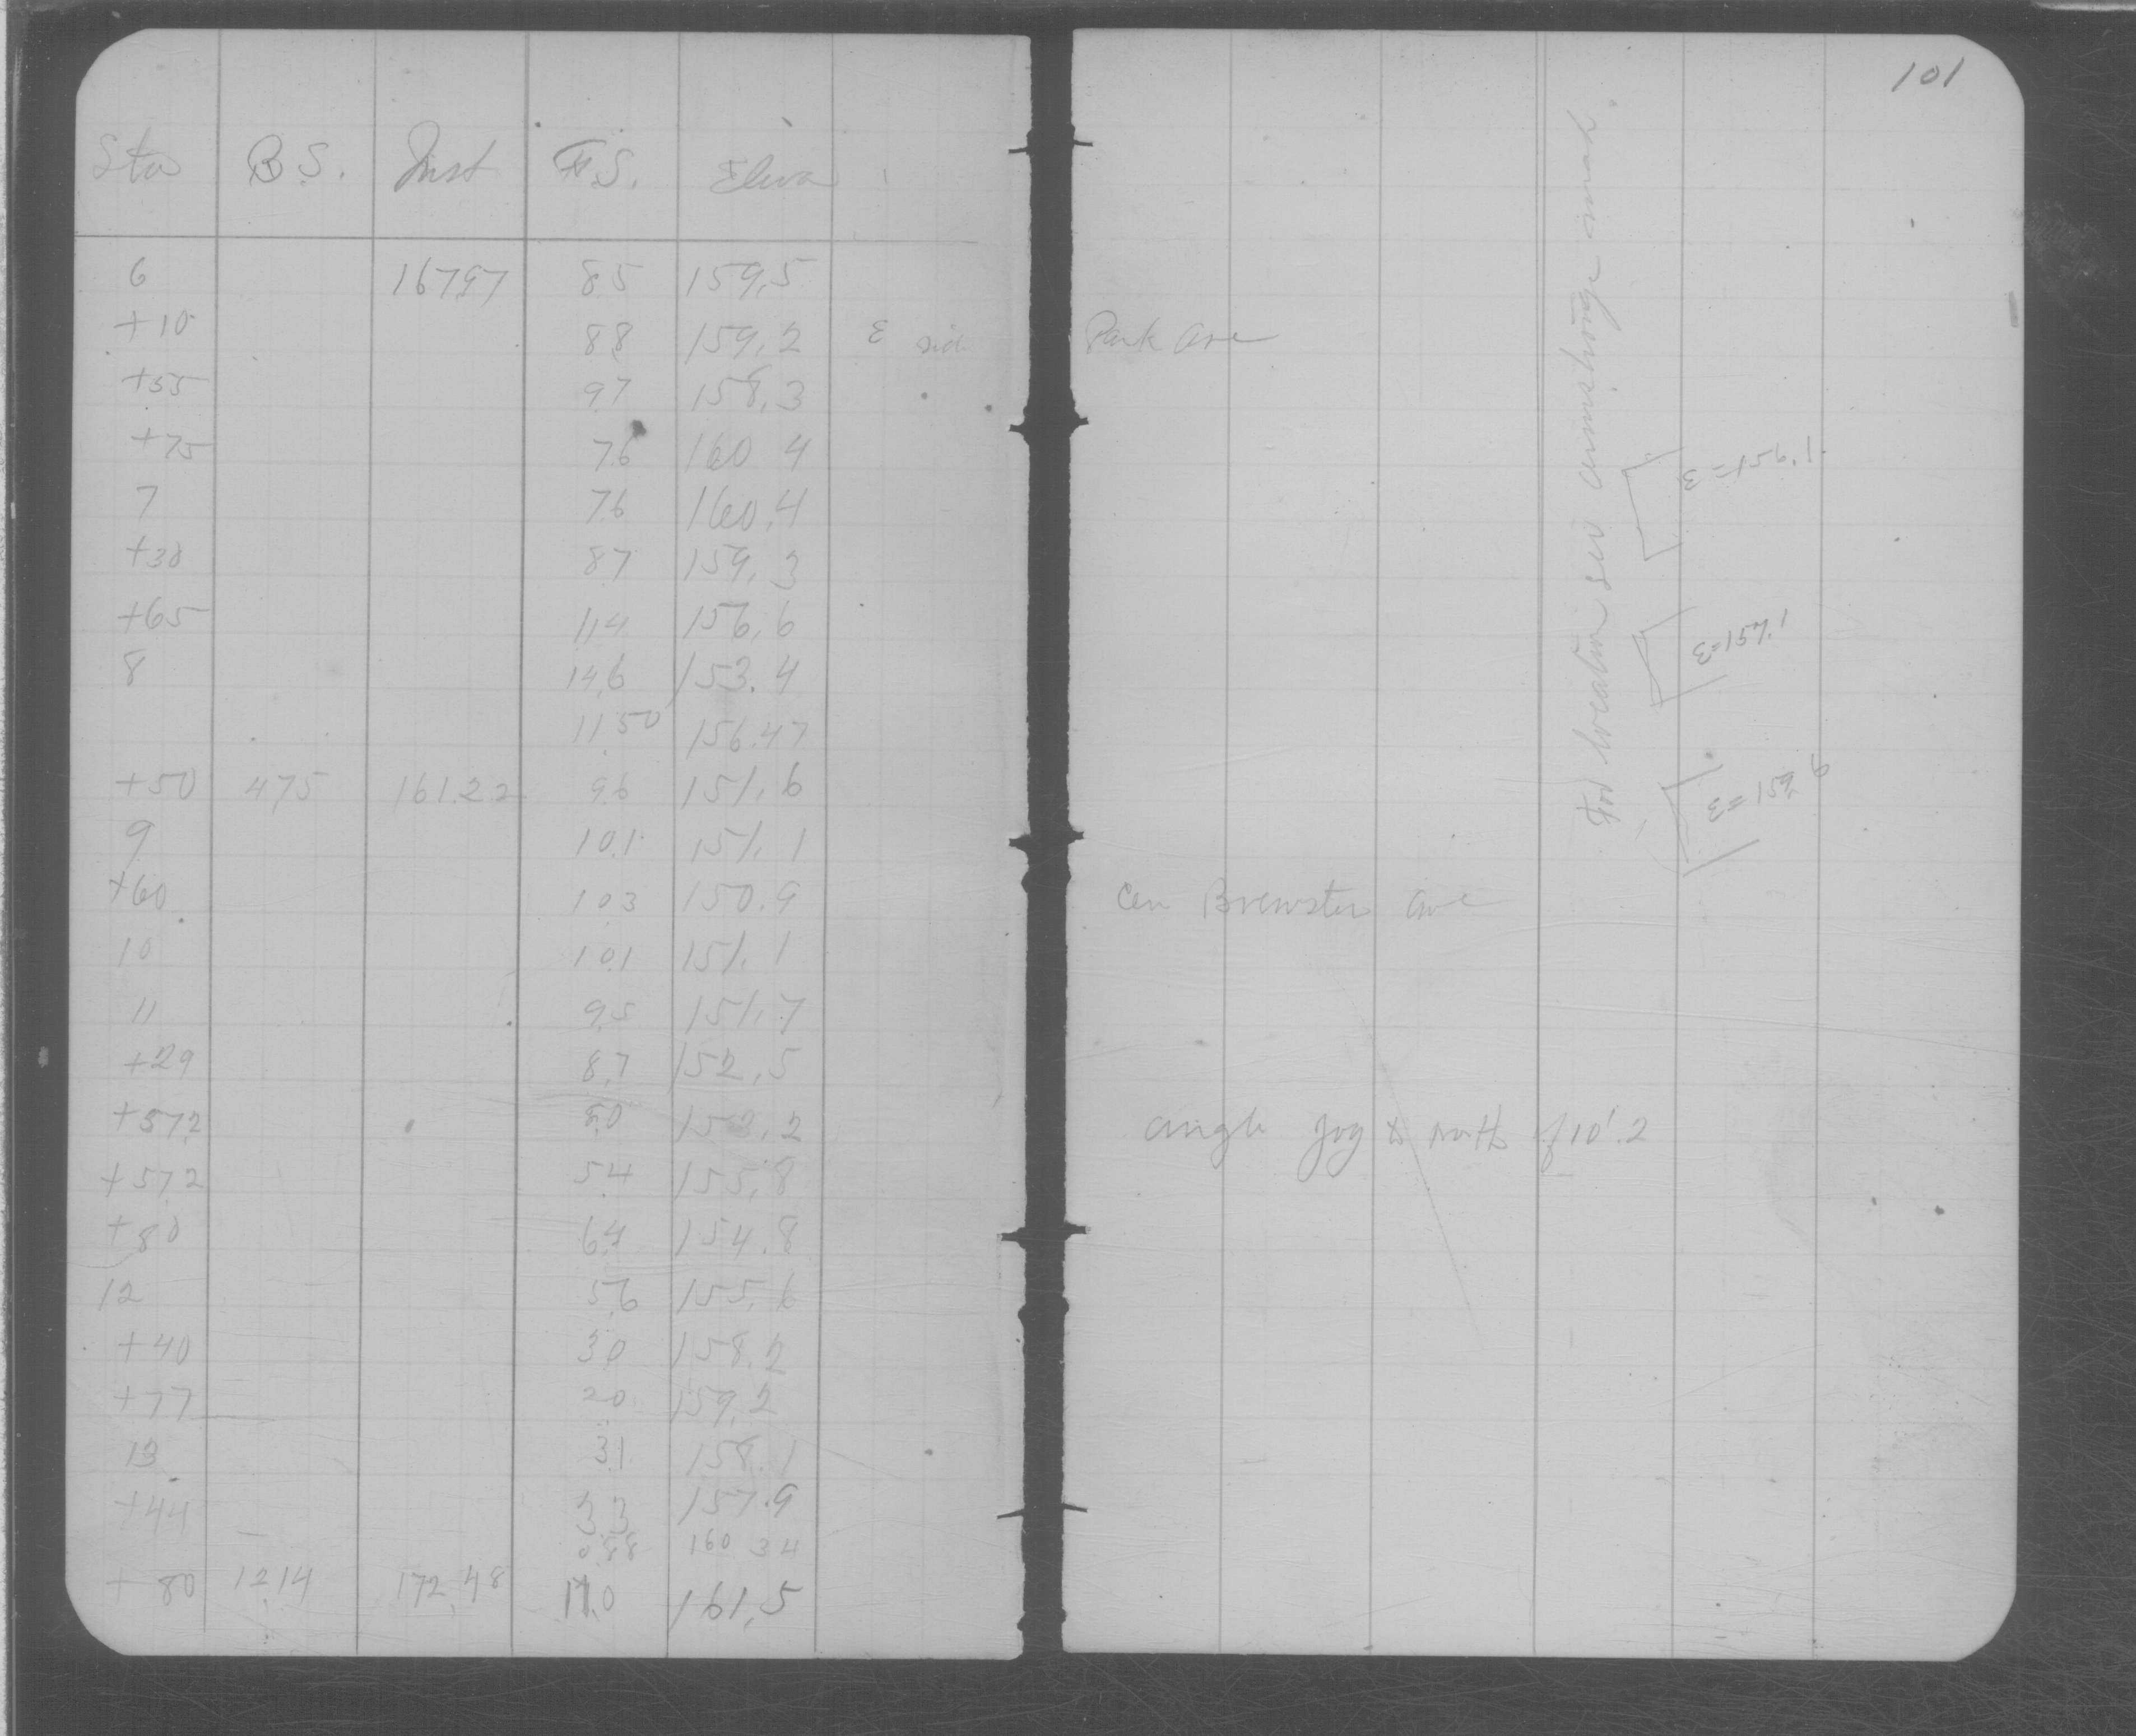 101
Sta B.S. Inst F.S. Eleva
6 167.97 8.5 159.5
+10 8.8 159.2 E side Park Ave
+55 9.7 158.3
+75 7.6 160 4
7 7.6 160.4
+30 8.7 159.3
+65 11.4 156.6
8 14.6 153.4
11.50 156.47
+50 4.75 161.22 9.6 151.6
9 10.1 151.1
+60 10.3 150.9 Cen Brewster Ave
10 10.1 151.1
11 9.5 151.7
+29 8.7 152.5
+57.2 8.0 153.2 angle jog to north of 10'.2
+57.2 5.4 155.8
+80 6.4 154.8
12 5.6 155.6
+40 3.0 158.2
+77 2.0 159.2
13 3.1 158.1
+44 3.3 157.9
0.88 160 34
+80 12.14 172.48 11.0 161.5
For location see